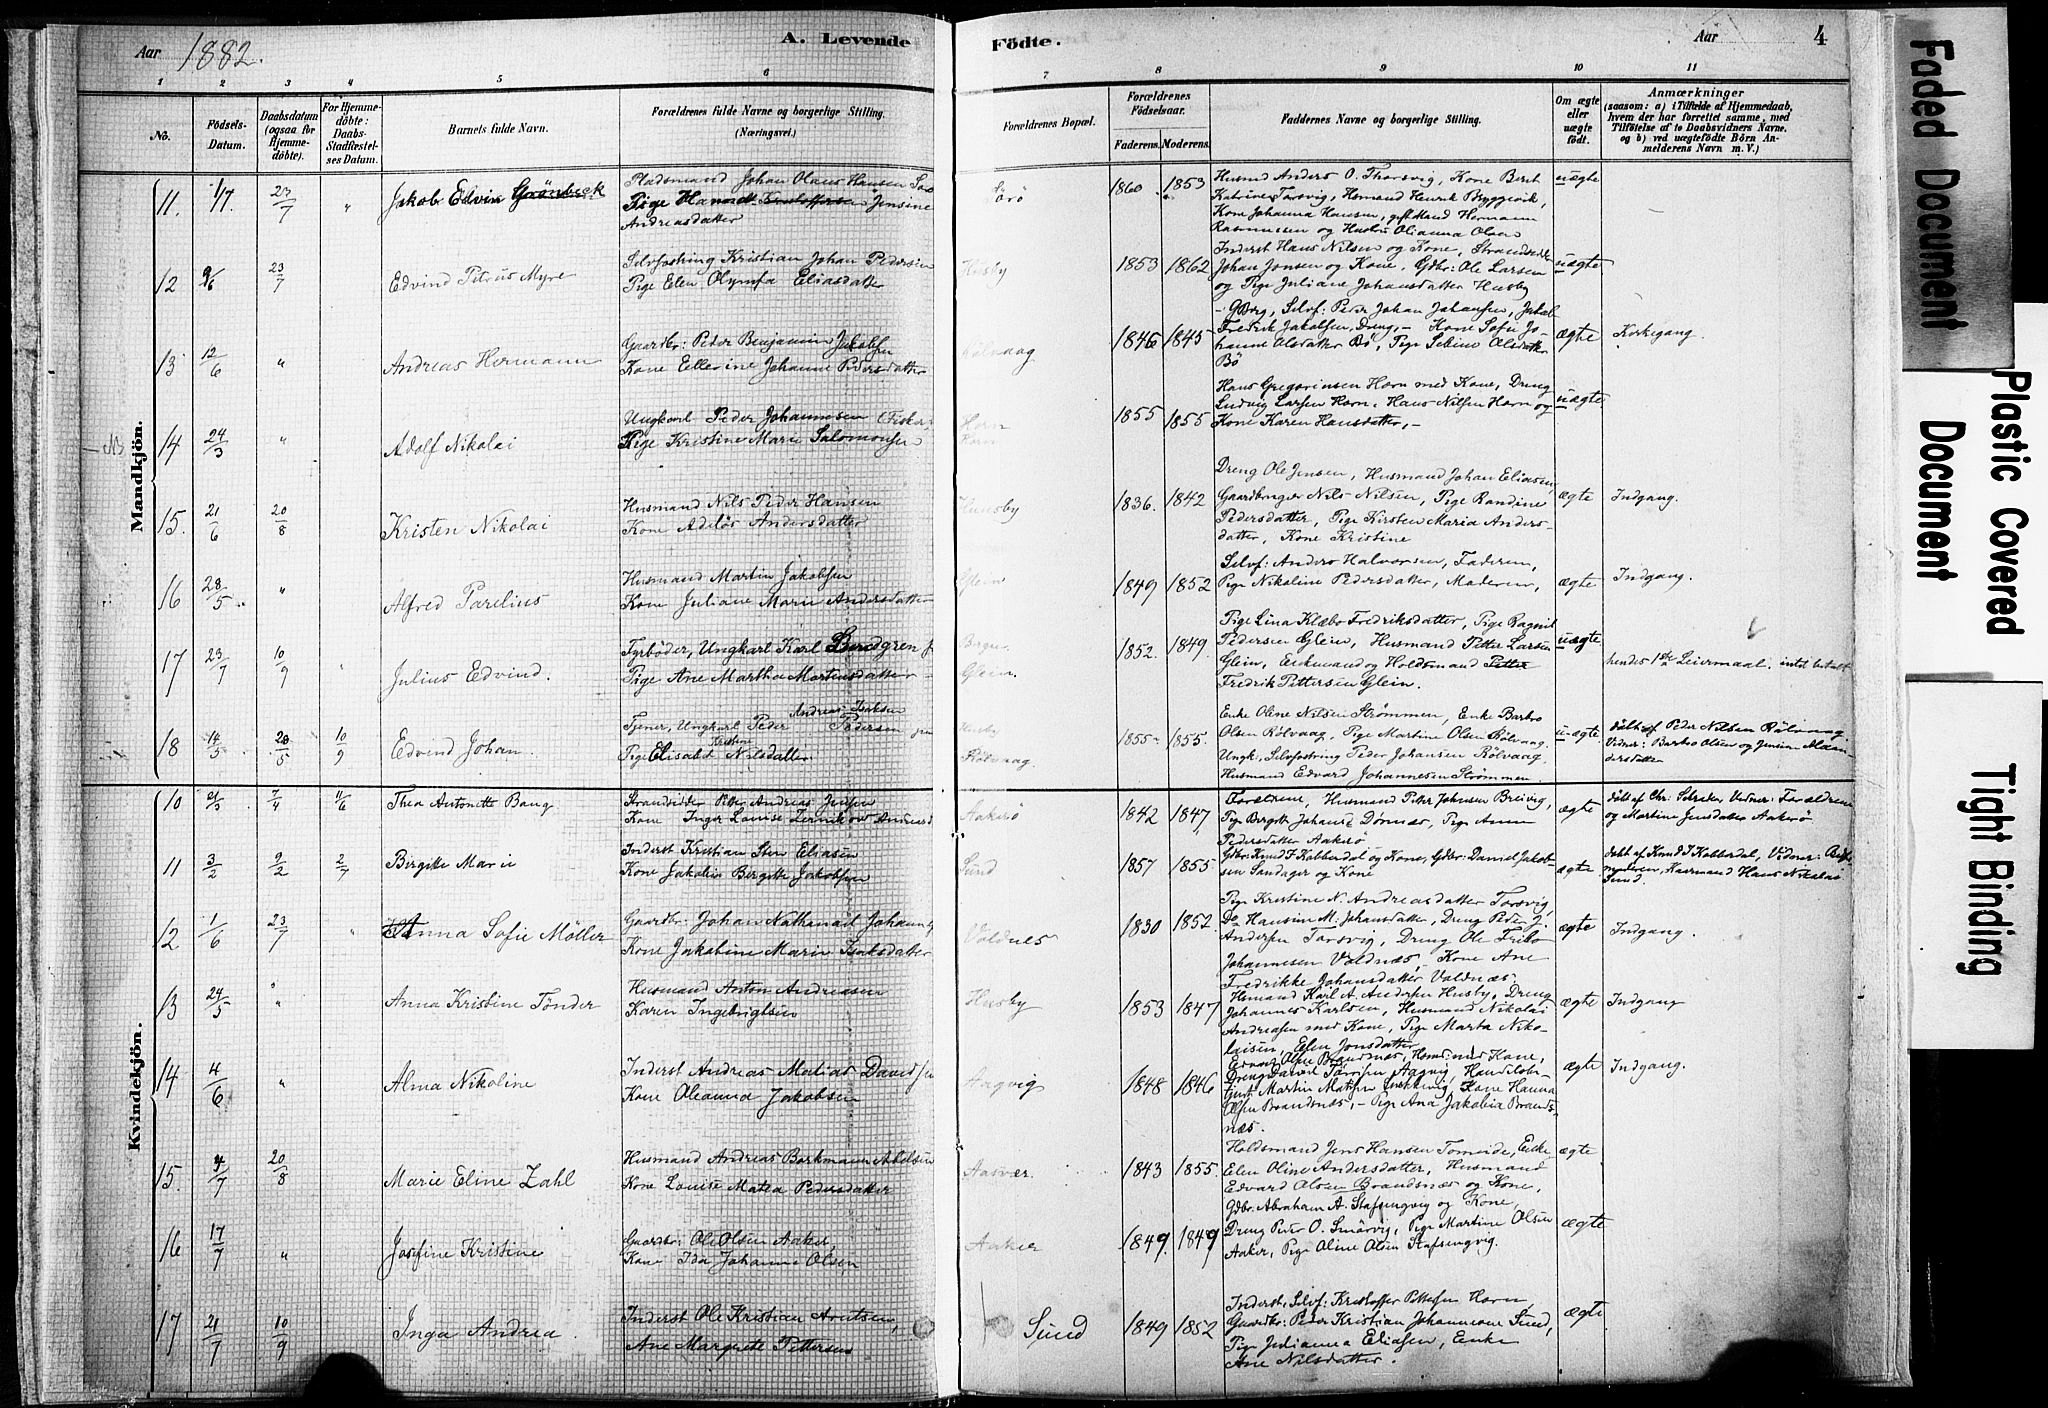 Aar 1882.
A. Levende
Födte.
Aar
4
1 2 3 4 5 6 7 8 9 10 11
No.
Födsels-
Datum.
Daabsdatum
(ogsaa for
Hjemme-
döbte).
For Hjemme-
döbte:
Daabs-
Stadfæstel-
ses Datum.
Barnets fulde Navn.
Forældrenes fulde Navne og borgerlige Stilling.
(Næringsvei.)
Forældrenes Bopæl.
Forældrenes
Födselsaar.
Faderens. Moderens.
Faddernes Navne og borgerlige Stilling.
Om ægte
eller
uægte
födt.
Anmærkninger
(saasom: a) i Tilfælde af Hjemmedaab,
hvem der har forrettet samme, med
Tilföielse af to Daabsvidners Navne,
og b) ved uægtefödte Börn An-
melderens Navn m. V.)
Mandkjön.
11. 1/7. 23/7 " Jakob Edvin Grönbeck
Pladsmand Johan Olaus Hansen
Pige Jensine
Andreasdatter
1860. 1853
Husmd Anders O. Thorsvig, Kone Berit
Katrine Torsvig, Husmand Henrik Bryggevik,
Kone Johanna Hansen, gift Mand Hermann
Rasmussen og Hustru Olianna Olsen
uægte
12 9/6 23/7 Edvind Petrus Myre
Selvfostring Kristian Johan Pedersen
Pige Elen Olymfa Eliasdatter
Husby
1853 1862
Inderst Hans Nilsen og Kone, Strandsidder
Johan Jonsen og Kone, Gdbr: Ole Larsen
og Pige Juliane Johansdatter Husby
uægte
13 12/6 " Andreas Hermann
Gaardbr: Peder Benjamin Jakobsen
Kone Ellerine Johanne Pedersdatter
Rölvaag
1846 1845
Selvf: Peder Johan Johansen,
Fredrik Jakobsen, Dreng, - Kone Sofie Jo-
hanne Olsdatter Bö, Pige Olsdatter
Bö
ægte
Kirkegang.
14 24/3 " Adolf Nikolai
Ungkarl Peder Johannesen (Fisker)
Pige Kristine Marie Salomonsen
Horn
1855 1855
Hans Gregoriusen Horn med Kone, Dreng
Ludvig Larsen Horn, Hans Nilsen Horn og
Kone Karen Hansdatter, -
uægte
15. 21/6 20/8 Kristen Nikolai
Husmand Nils Peder Hansen
Kone Andersdatter
Husby
1836. 1842
Dreng Ole Jensen, Husmand Johan Eliasen,
Gaardbruger Nils Nilsen, Pige Randine
Pedersdatter, Pige Kirsten Maria Anders-
datter, Kone Kristine
ægte
Indgang.
16 28/5 " Alfred Parelius
Husmand Martin Jakobsen
Kone Juliane Marie Andersdatter
Glein
1849 1852
Selvf: Anders Halvorsen, Faderen,
Pige Nikoline Pedersdatter, Moderen,
ægte
Indgang.
17 23/7 10/9 " Julius Edvind.
Fyrböder, Ungkarl Karl Lundgren
Pige Ane Martha Mortensdatter
Glein.
1852. 1849.
Pige Lina Klæbo Fredriksdatter, Pige Ragnil
Pedersen Glein, Husmand Petter Larsen
Glein, Enkemand og Holdsmand Petter
Fredrik Pettersen Glein.
uægte
hendes 1ste Leiermaal. intet betalt
18 14/5 28/5 10/9 Edvind Johan.
Andreas Isaksen
Tjener, Ungkarl Peder Pedersen
Kristine
Pige Elisabet Nilsdatter
Husby
Rölvaag.
1855 1855.
Enke Oline Nilsen Strömmen, Enke Barbro
Olsen Rölvaag, Pige Martine Olsen Rölvaag.
Ungk., Selvfostring Peder Johansen Rölvaag,
Husmand Edvard Johannesen Strömmen.
uægte
döbt af Peder Nilsen Rölvaag.
Vidner: Barbro Olsen og Jensine
dersdatter
Kvindekjön.
10 21/3 7/4 11/6 Thea Antonette Bang
Strandsidder Petter Andreas Jensen
Kone Inger Louise Zernikow
Aakerö
1842 1847
Forældrene, Husmand Peter Johnsen Breivig,
Pige Bergitte Johanne Dönnæs, Pige Anne
Pedersdatter Aakerö
ægte
döbt af Chr: Vidner: Forældrene
og Martine Jensdatter Aakerö
11 3/2 9/2 2/7 Birgitte Marie
Inderst Kristian Sten Eliasen
Kone Jakobia Bergitte Jakobsen
Sund
1857 1855
Gdbr: Knud J. Kobberdal og Kone, Gdbr: Daniel Jakob-
sen Sandager og Kone
ægte
döbt af Knud J. Kobberdal, Vidner:
moderen, Husmand Hans Nikolai
Sund.
12 1/6 23/7 " Anna Sofie Möller
Gaardbr: Johan Nathanael Johannes
Kone Jakobine Marie Isaksdatter
Valdnes
1830 1852.
Pige Kristine N. Andreasdatter Torsvig,
Do Hansine M. Johansdatter, Dreng Peder J.
Andersen Torsvig, Dreng Ole
Johannesen Valdnæs, Kone Ane
Fredrikke Johansdatter Valdnæs.
ægte
Indgang.
13 24/5 " Anna Kristine Tönder
Husmand Anton Andreasen
Karen Ingebrigtsen
Husby
1853 1847
Husmand Karl A. Andersen Husby, Dreng
Johannes Karlsen, Husmand Nikolai
Andreasen med Kone, Pige Marta Niko-
laisen, Elen Jonsdatter
ægte
Indgang
14 4/6 " Alma Nikoline
Inderst Andreas Matias Davidsen
Kone Oleanna Jakobsen
Aagvig
1848 1846
Edvard Olsen Brandsnæs, Husm: med Kone,
Dreng Daniel Aagvig,
Martin Kone Hanna
Olsen Brandsnæs, - Pige Ana Jakobia Brands-
næs.
ægte
Indgang.
15. 4/7 20/8 Marie Eline Zahl
Husmand Andreas Borkmann Abelsen
Kone Louise Matea Pedersdatter
Aasvær.
1843 1855.
Holdsmand Jens Hansen Tomeide, Enke
Elen Oline Andersdatter, Husmand
Edvard Olsen Brandsnæs og Kone,
Gdbr: Abraham A. Stafsengvig og Kone
ægte
16 17/7 " Josefine Kristine
Gaardbr: Ole Olsen Aaker,
Kone Ida Johanne Olsen
Aaker
1849. 1849
Dreng Peter O. Smörvig, Pige Martine Olsen
Aaker, Pige Oline Olsen Stafsengvig.
ægte
17 21/7 10/9 Inga Andrea.
Inderst Ole Kristian Arntsen,
Ane Margrete Pettersen
Sund
1849 1852
Inderst, Selvf: Kristoffer Pettersen Horn,
Gaardbr: Peder Kristian Johannesen Sund,
Pige Julianna Eliasen, Enke
Ane Nilsdatter.
ægte
Faded Document
Plastic Covered
Document
Tight Binding